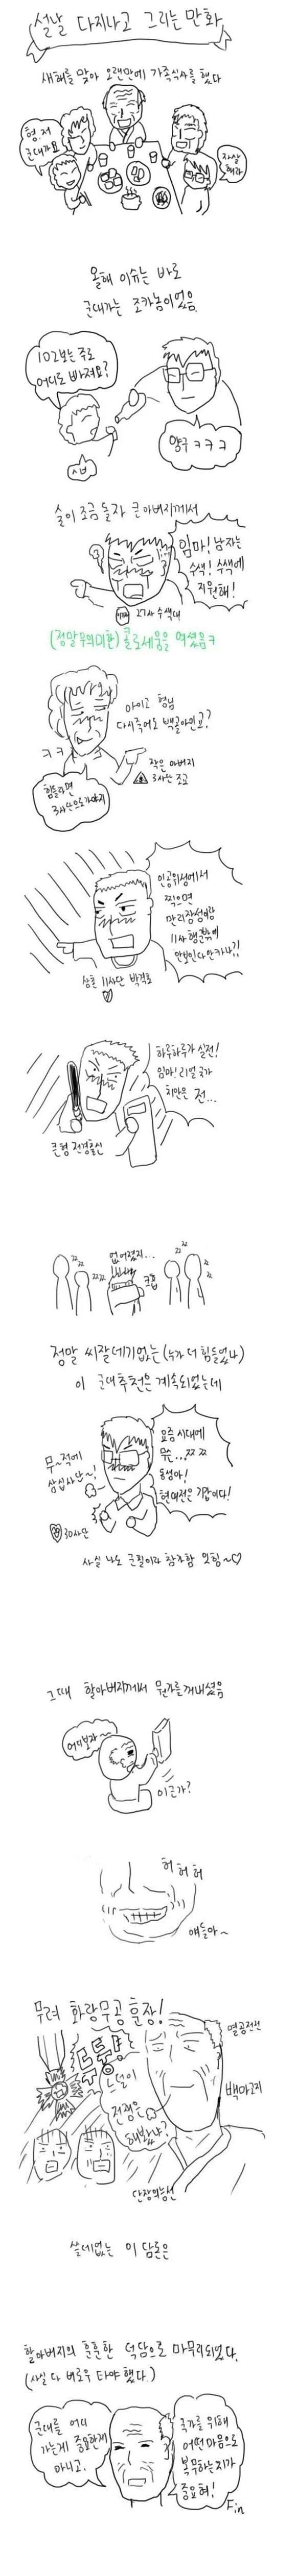 설날 다지나고 그리는 만화
새해를 맞아 오랜만에 가족식사를 했다
형 저
군대가요
자살
해라
올해 이슈는 바로
군대가는 조카놈이었음
102보는 주로
어디로 빠져요?
양구 ㅋㅋㅋ
술이 조금 돌자 큰아버지께서
임마! 남자는
수색! 수색에
지원해!
27사 수색대
(정말 무의미한) 콜로세움을 여셨음ㅋ
아이고 형님
다시죽어도 백골아인교?
ㅋㅋ
힘들라면
3사단으로가야지
작은 아버지
3사단 조교
인공위성에서
찍으면
만리장성이랑
11사 행군밖에
안보인다안카나?!
삼촌 11사단 박격포
하루하루가 실전!
임마! 리얼 국가
치안은 전...
큰형 전경출신
없어졌지...
크흡
ㅉㅉ
ㅉㅉ
ㅉㅉ
ㅉㅉ
정말 씨잘데기없는 (누가 더 힘들었나)
이 군대추천은 계속되었는데
요즘시대에
무슨...ㅉㅉ
동생아!
현대전은 기갑이다!
무~적에
삼십사단~!
30사단
사실 나도 군필이라 참가함 잇힝~♡
그때 할아버지께서 뭔가를 꺼내셨음
어디보자~
이근가?
허 허 허
얘들아~
무려 화랑무공훈장!
두둥!
느덜이
전쟁은
해봤냐?
열공전선
백마고지
단장의능선
쓸데없는 이 담론은
할아버지의 훈훈한 덕담으로 마무리되었다.
(사실 다 버로우 타야 했다.)
군대를 어디
가는게 중요한게
아니고.
국가를 위해
어떤마음으로
복무하는지가
중요혀!
Fin